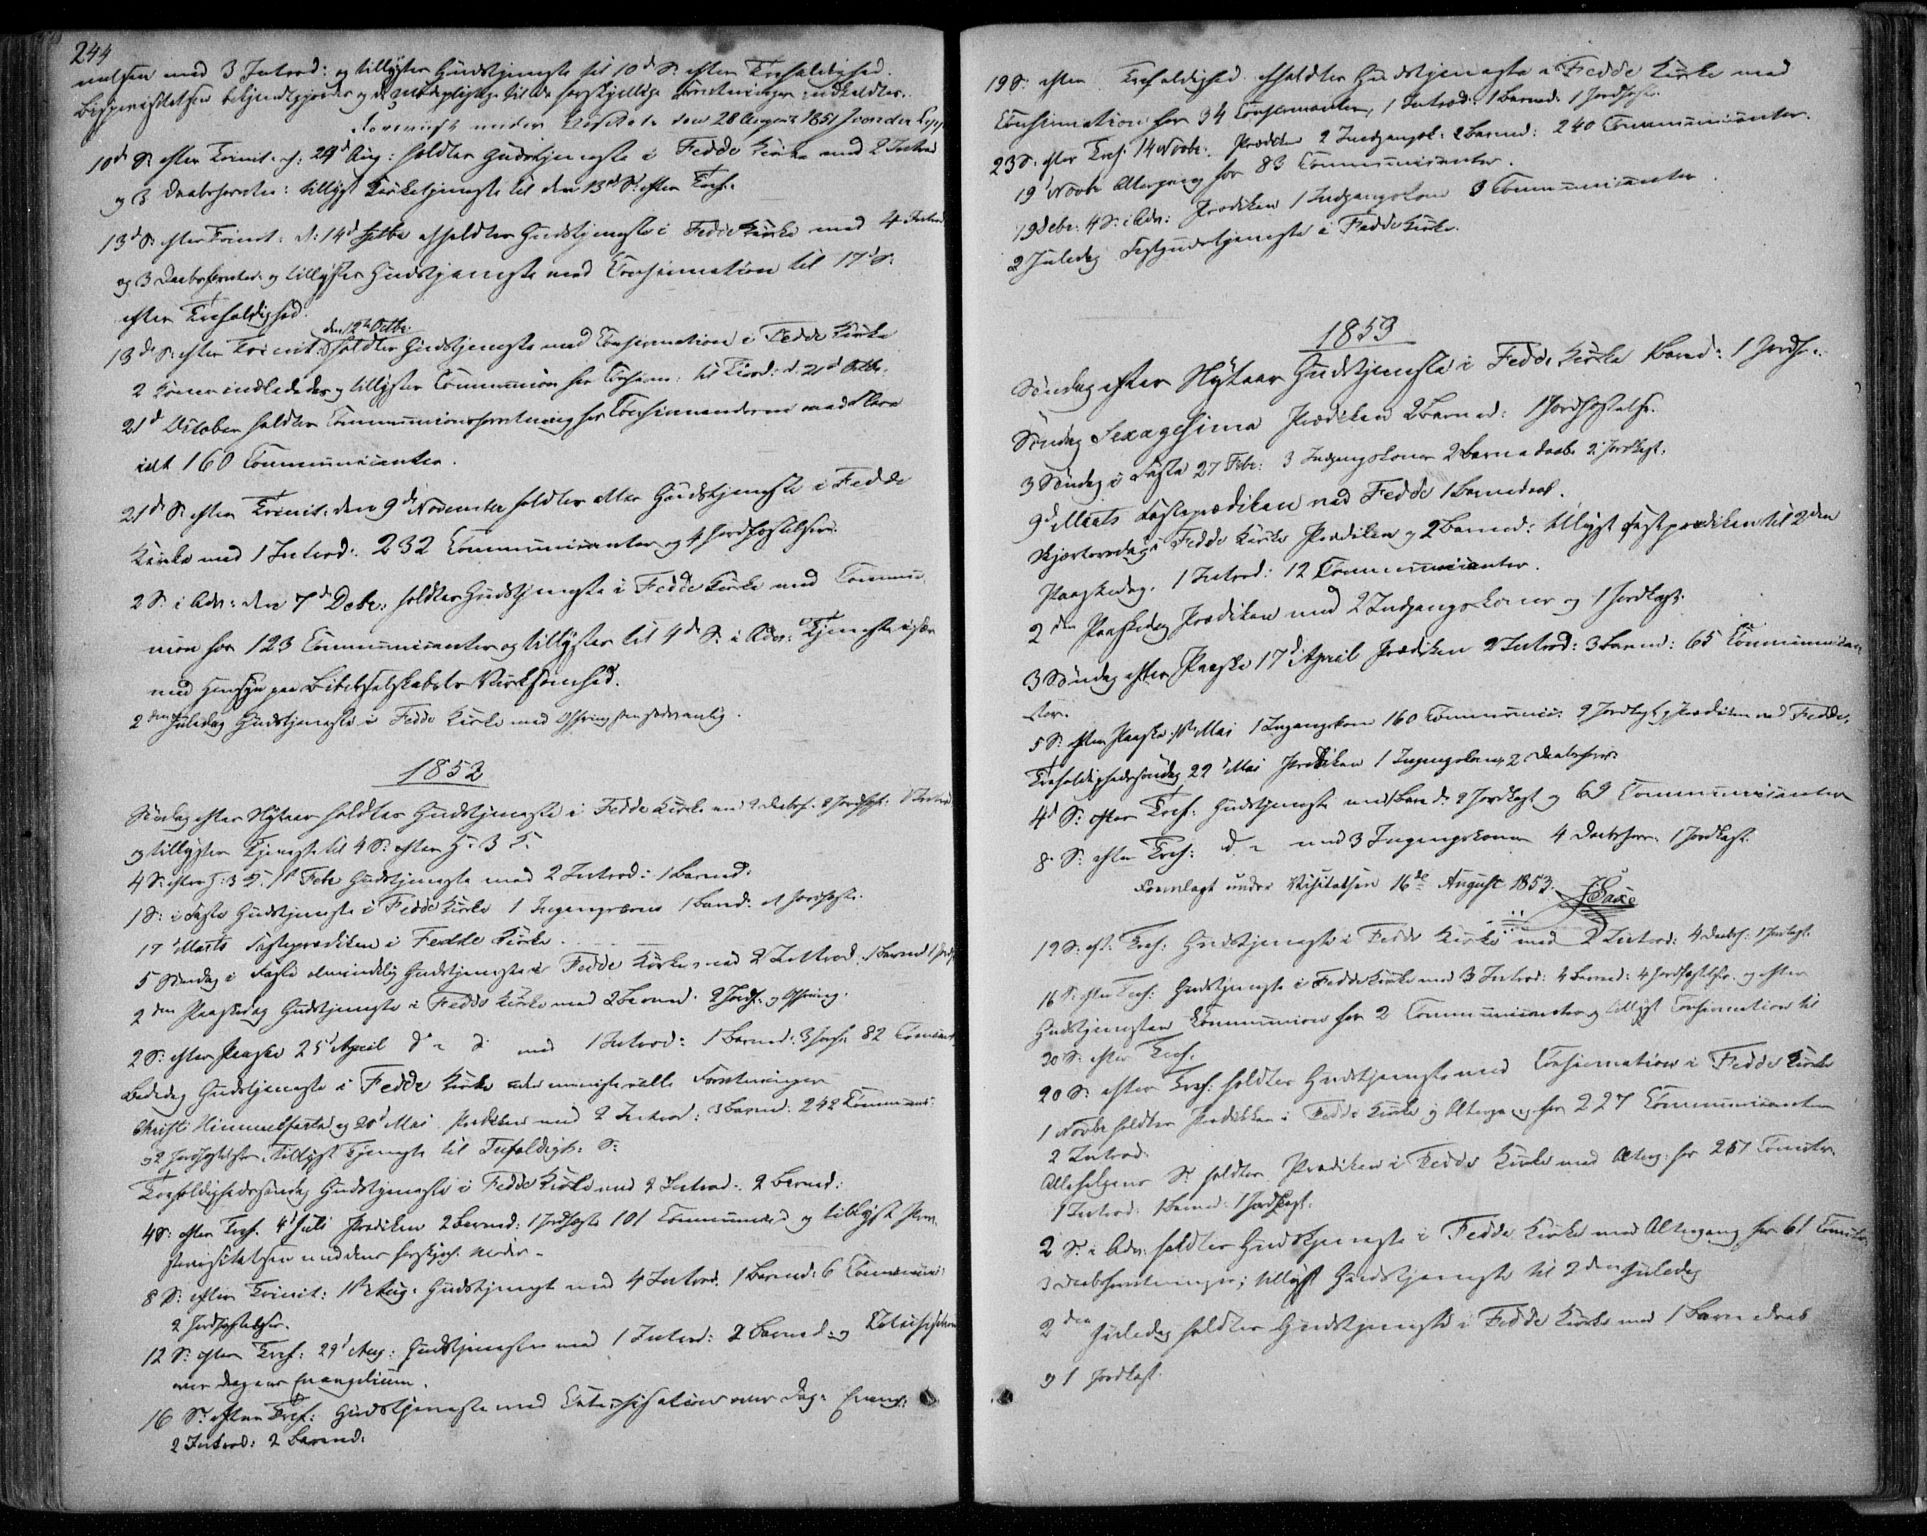 244
med 3 Introd: og tillyster Gudstjeneste til 10d S: efter Trefoldighed.
Bispevisitatsen bekjendtgjordes og de
under Visitats den 28 August 1851
10d S: efter Trinit: d: 24d Aug: holdtes Gudstjeneste i Fedde Kirke med 2 Introd
og 3 Daabsforretn: tillyst Kirketjeneste til den 13d S: efter Tref:
13d S: efter Trinit: d: 14d Septbr afholdtes Gudstjeneste i Fedde Kirke med 4 Introd
og 3 Daabsforretn: og tillystes Gudstjeneste med Confirmation til 17d S:
efter Trefoldighed.
den 12te Octbr.
13de S: efter Trinit: holdtes Gudstjeneste med Confirmation i Fedde Kirke
2 Koner indlededes og tillystes Communion for Confirm: til Tirsd: d. 21d Octbr.
21d October holdtes Communionsforretning for Confirmanderne med flere
ialt 160 Communicanter.
21de S: efter Trinit: den 9de November holdtes atter Gudstjeneste i Fedde
Kirke med 1 Introd: 232 Communicanter og 4 Jordfæstelser.
2 S: i Adv: den 7d Debr: holdtes Gudstjeneste i Fedde Kirke med Commu-
nion for 123 Communicanter og tillystes til 4de S: i Adv: Tjeneste
med Hensyn paa Bibelselskabets Virksomhed.
2den Juledag Gudstjeneste i Fedde Kirke med Offring som sædvanlig.
1852
Søndag efter Nytaar holdtes Gudstjeneste i Fedde Kirke med 2 Daabsf. 2 Jordfæst: 1 Introd
og tillystes Tjeneste til 4 S: efter H. 3 K.
4 S: efter H: 3 K. 1st Febr Gudstjeneste med 2 Introd: 1 Barned:
1 S: i Faste Gudstjeneste i Fedde Kirke 1 1 Barned: 1 Jordfæst:
17 Marts Fasteprædiken i Fedde Kirke.
5 Søndag i Faste almindelig Gudstjeneste i Fedde Kirke med 2 Introd. 1 Barned 1 Jordf
2den Paaskedag Gudstjeneste i Fedde Kirke med 2 Barned. 2 Jordf. og Offring.
2 S: efter Paaske 25 April do do med 1 Introd: 1 Barned: 3 Jordf: 82 Commun
Bededag Gudstjeneste i Fedde Kirke uden ministerielle Forretninger
Christi Himmelfartsdag 20 Mai Prædiken med 2 Introd: 3 Barned: 242 Communi:
og 2 Jordfæstelser. Tillyst Tjeneste til Trefoldigh: S:
Trefoldighedssøndag Gudstjeneste i Fedde Kirke med 2 Introd: 2 Barned:
4 S: efter Tref. 4d Juli Prædiken 2 Barned: 1 Jordfæste 101 Communic: og tillyst Prov-
stevisitatsen
8 S: efter Trinit: 1st Aug: Gudstjenest med 4 Introd. 1 Barned: 6 Communi:
2 Jordfæstelser.
12 S: efter Tref: 29 Aug: Gudstjeneste med 1 Introd: 2 Barned: og Catechisation
over Dagens Evangelium.
16 S: efter Tref: Gudstjeneste med Catechisation over Dag: Evang:
2 Introd: 2 Barned:
19 S: efter Trefoldighed afholdtes Gudstjeneste i Fedde Kirke med
Confirmation for 34 Confirmanter, 1 Introd: 1 Barned. 1 Jordfæst.
23 S: efter Tref. 14 Novbr: Prædiken 2 Indgangsk: 2 Barned: 240 Communicanter.
19 Novbr Altergang for 83 Communicanter.
19 Debr. 4 S: i Adv: Prædiken 1 Indgangskone 3 Communicanter.
2 Juledag Festgudstjeneste i Fedde Kirke.
1853
Søndag efter Nytaar Gudstjeneste i Fedde Kirke 1 Barned: 1 Jordf:
Søndag Sexagesima Prædiken 2 Barned: 1 Jordfæstelse.
3 Søndag i Faste 27 Febr: 3 Indgangskoner 2 Barnedaab 2 Jordfæst:
9d Marts Fasteprædiken ved Fedde 1 Barnedaab.
Skjærtorsdag i Fedde Kirke Prædiken og 2 Barned: tillyst Festprædiken til 2den
Paaskedag. 1 Introd: 12 Communicanter.
2den Paaskedag Prædiken med 2 Indgangskoner og 1 Jordfæst:
3 Søndag efter Paaske 17d April Prædiken 2 Introd: 3 Barned: 65 Communican
ter.
5 S: efter Paaske 1ste Mai 1 Ingangskone 160 Communic: 2 Jordfæst: Prædiken ved Fedde.
Trefoldighedssøndag 22 Mai Prædiken 1 Ingangskone, 2 Daabsforr:
4d S: efter Tref: Gudstjeneste med 1 Barnd: 2 Jordfæst og 69 Communicanter
8 S: efter Tref: do med 3 Ingangskoner 4 Daabsforr: 1 Jordfæst:
Fremlagt under Visitatsen 16de August 1853.
12 S: eft: Tref: Gudstjeneste i Fedde Kirke med 2 Introd: 4 Daabsf: 1 Jordfæst:
16 S: efter Tref: Gudstjeneste i Fedde Kirke med 3 Introd: 4 Barned: 4 Jordfæstelser og efter
Gudstjenesten Communion for 2 Communicanter og tillyst Confirmation til
20 S: efter Tref.
20 S: efter Tref: holdtes Gudstjeneste med Confirmation i Fedde Kirke
1 Novbr holdtes Prædiken i Fedde Kirke og Altergang for 227 Communicanter
2 Introd.
Allehelgens S: holdtes Prædiken i Fedde Kirke med Alterg: for 267 Comuter
1 Introd: 1 Barned: 1 Jordfæst:
2 S: i Adv: holdtes Gudstjeneste i Fedde Kirke med Altergang for 61 Comuter
3 Daabsforretninger; tillyst Gudstjeneste til 2den Juledag
2den Juledag holdtes Gudstjeneste i Fedde Kirke med 1 Barnedaab
og 1 Jordfæst.